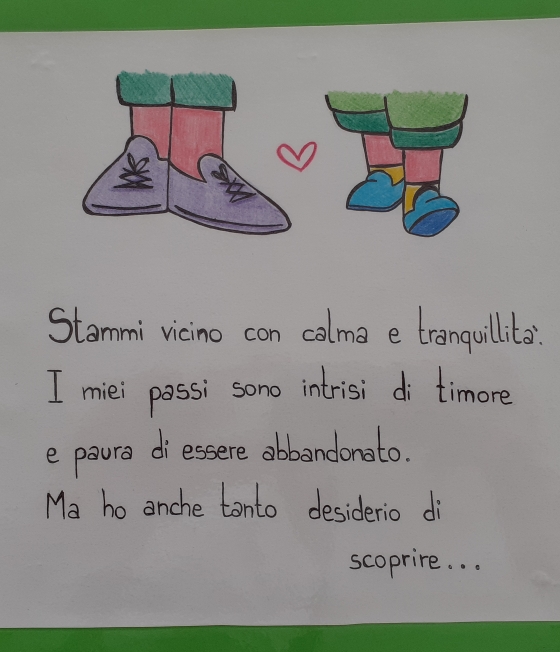 Stammi vicino con calma e tranquillità.
I miei passi sono intrisi di timore
e paura di essere abbandonato.
Ma ho anche tanto desiderio di
scoprire...